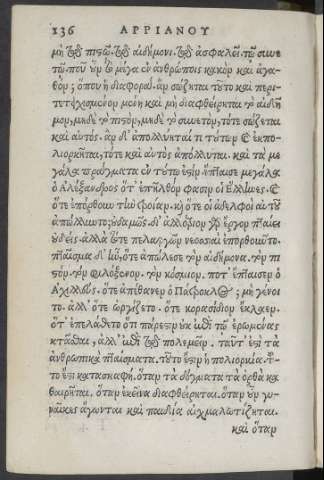 136 ΑΡΡΙΑΝΟΥ
μὴ τῷ πιστῷ. τῷ αἰδήμονι. τῷ ἀσφαλεῖ. τῷ συνε
τῷ. ποῦ οὖν τὸ μέγα ἐν ἀνθρώποις κακὸν καὶ ἀγα-
θόν; ὅπου ἡ διαφορά. ἂν σώζηται τοῦτο καὶ περι-
τετειχισμένον μένῃ καὶ μὴ διαφθείρηται τὸ αἰδῆ
μον, μηδὲ τὸ πιστὸν, μηδὲ τὸ συνετὸν, τότε σώζεται
καὶ αὐτός. ἂν δ' ἀπολλύηταί τι τούτων καὶ ἐκπο-
λιορκῆται, τότε καὶ αὐτὸς ἀπόλλυται. καὶ τὰ με
γάλα πράγματα ἐν τούτῳ ἐστίν. ἔπταισε μεγάλα
ὁ Ἀλέξανδρος ὅτ' ἐπῆλθόν φασιν οἱ ἕλληνες. καὶ
ὅτε ἐπόρθουν τὴν τροίαν. καὶ ὅτε οἱ ἀδελφοὶ αὐτοῦ
ἀπώλλυντο; οὐδαμῶς. δι' ἀλλότριον γὰρ ἔργον πταίει
οὐδείς. ἀλλὰ τότε πελαργῶν νεοσσιαὶ ἐπορθοῦντο.
πταῖσμα δ' ἦν, ὅτε ἀπώλεσε τὸν αἰδήμονα. τὸν πι
στόν. τὸν φιλόξενον. τὸν κόσμιον. ποτ' ἔπταισεν ὁ
Ἀχιλλεύς. ὅτε ἀπέθανεν ὁ Πάτροκλος; μὴ γένοι
το. ἀλλ' ὅτε ὠργίζετο. ὅτε κορασίδιον ἔκλαεν.
ὅτ' ἐπελάθετο ὅτι πάρεστιν οὐκ ἐπὶ τῷ ἐρωμένας
κτᾶσθαι, ἀλλ' ἐπὶ τῷ πολεμεῖν. ταῦτ' ἐστὶ τὰ
ἀνθρωπικὰ πταίσματα. τοῦτό ἐστιν ἡ πολιορκία. τοῦ-
τό ἐστι κατασκαφή. ὅταν τὰ δόγματα τὰ ὀρθὰ κα
θαιρῆται. ὅταν ἐκεῖνα διαφθείρηται. ὅταν οὖν γυ-
ναῖκες ἄγωνται καὶ παιδία αἰχμαλωτίζηται.
καὶ ὅταν